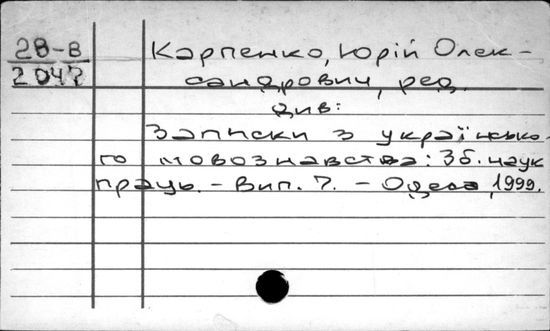 28-В Карпенко, Юрій Олек-
2047 сандрович, ред.
див:
Записки з українсько-
го мовознавства: Зб. наук
праць. - Вип. 7. - Одеса, 1999.